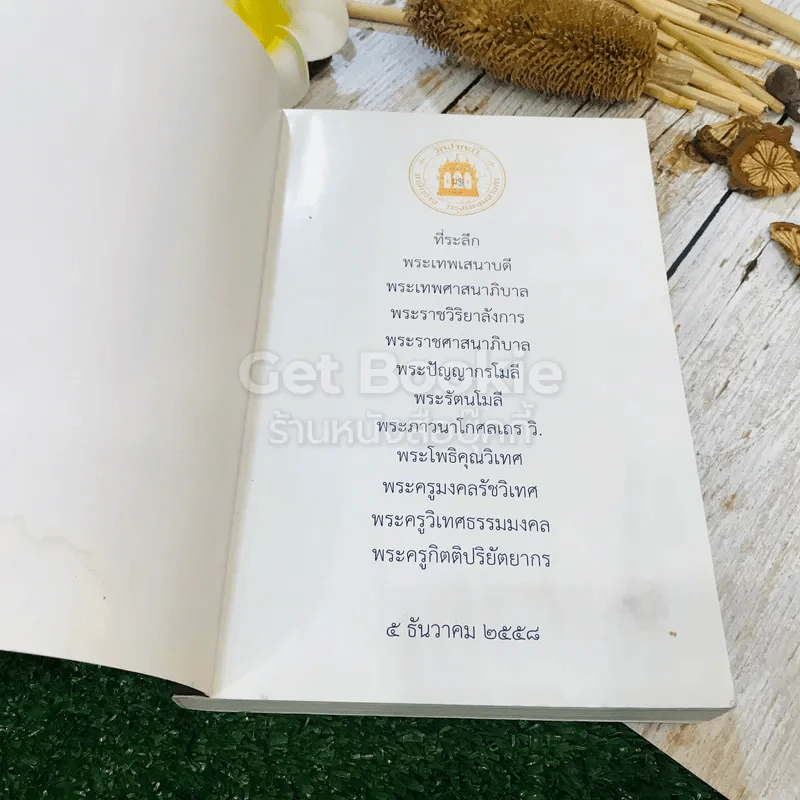 วัดปากน้ำ
ภาษีเจริญ กรุงเทพมหานคร
ที่ระลึก
พระเทพเสนาบดี
พระเทพศาสนาภิบาล
พระราชวิริยาลังการ
พระราชศาสนาภิบาล
พระปัญญากรโมลี
Get Bookie
พระรัตนโมลี
ร้านหนังสือบุ๊คกี้
พระภาวนาโกศลเถร วิ.
พระโพธิคุณวิเทศ
พระครูมงคลรัชวิเทศ
พระครูวิเทศธรรมมงคล
พระครูกิตติปริยัตยากร
๕ ธันวาคม ๒๕๕๘